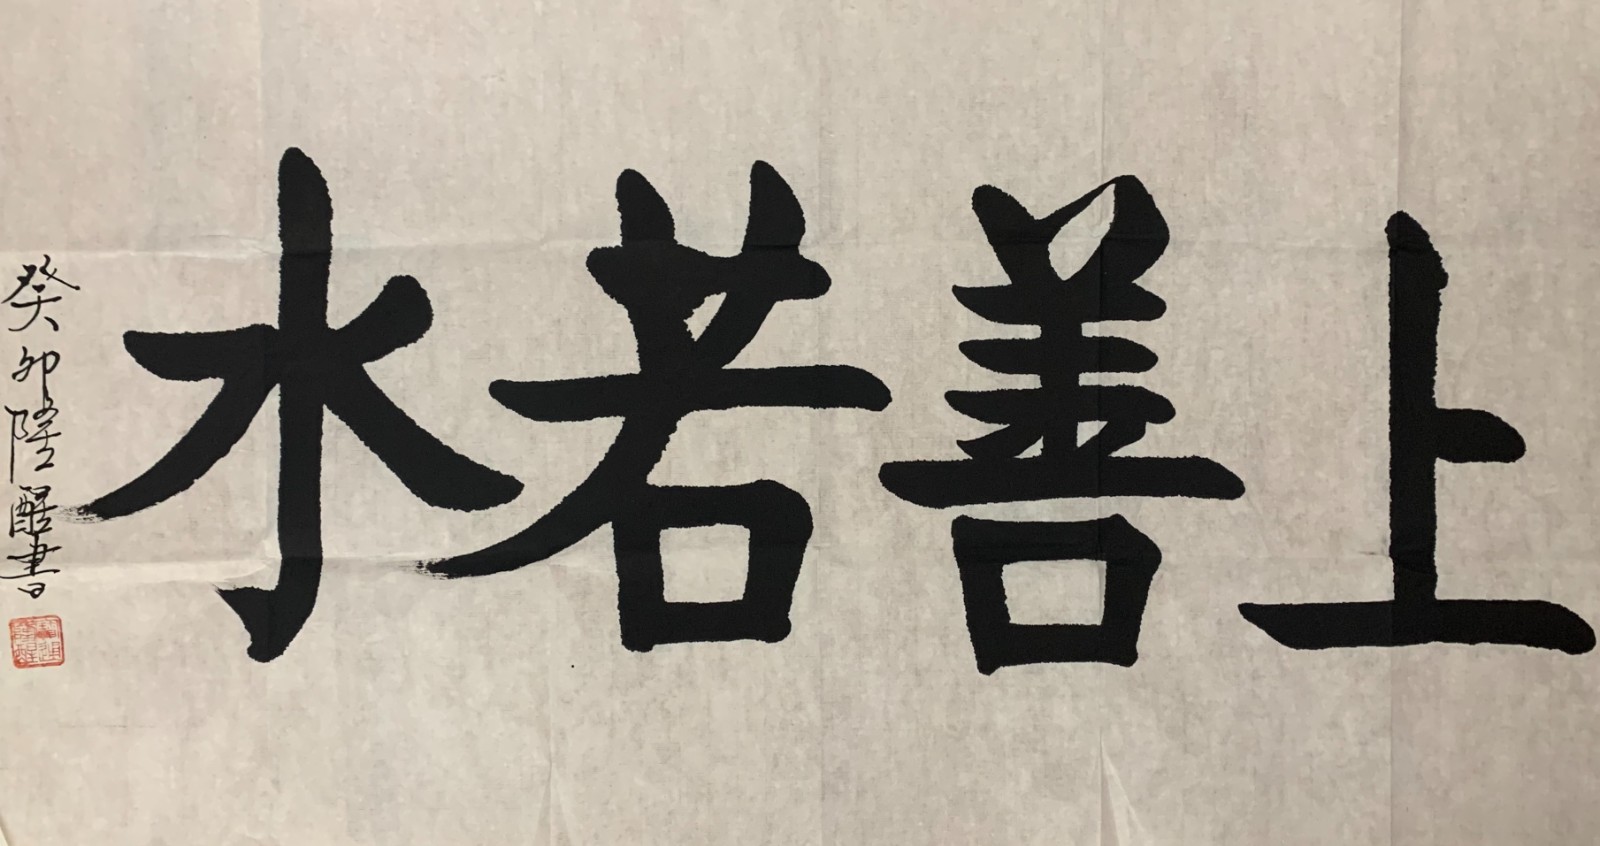 上善若水
癸卯陸醒書